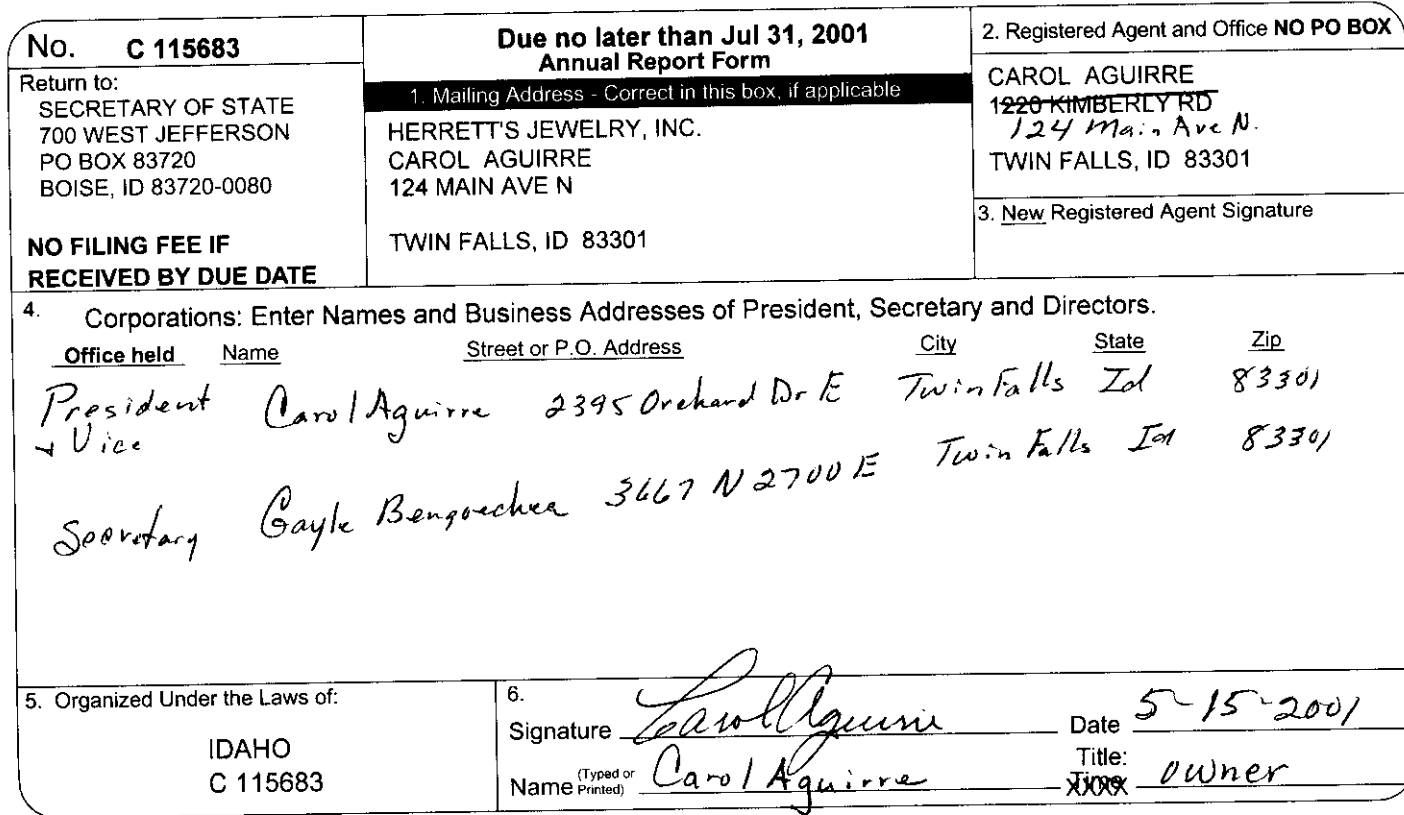 No. C 115683
Return to:
SECRETARY OF STATE
700 WEST JEFFERSON
PO BOX 83720
BOISE, ID 83720-0080
NO FILING FEE IF
RECEIVED BY DUE DATE
Due no later than Jul 31, 2001
Annual Report Form
1. Mailing Address - Correct in this box, if applicable
HERRETT'S JEWELRY, INC.
CAROL AGUIRRE
124 MAIN AVE N
TWIN FALLS, ID 83301
2. Registered Agent and Office NO PO BOX
CAROL AGUIRRE
1220 KIMBERLY RD
124 Main Ave N.
TWIN FALLS, ID 83301
3. New Registered Agent Signature
4. Corporations: Enter Names and Business Addresses of President, Secretary and Directors.
Office held Name Street or P.O. Address City State Zip
President Carol Aguirre 2395 Orchard Dr E Twin Falls Id 83301
+ Vice
Secretary Gayle Bengoechea 3667 N 2700 E Twin Falls Id 83301
5. Organized Under the Laws of:
IDAHO
C 115683
6.
Signature Carol Aguirre Date 5-15-2001
Name (Typed or Printed) Carol Aguirre Title: owner